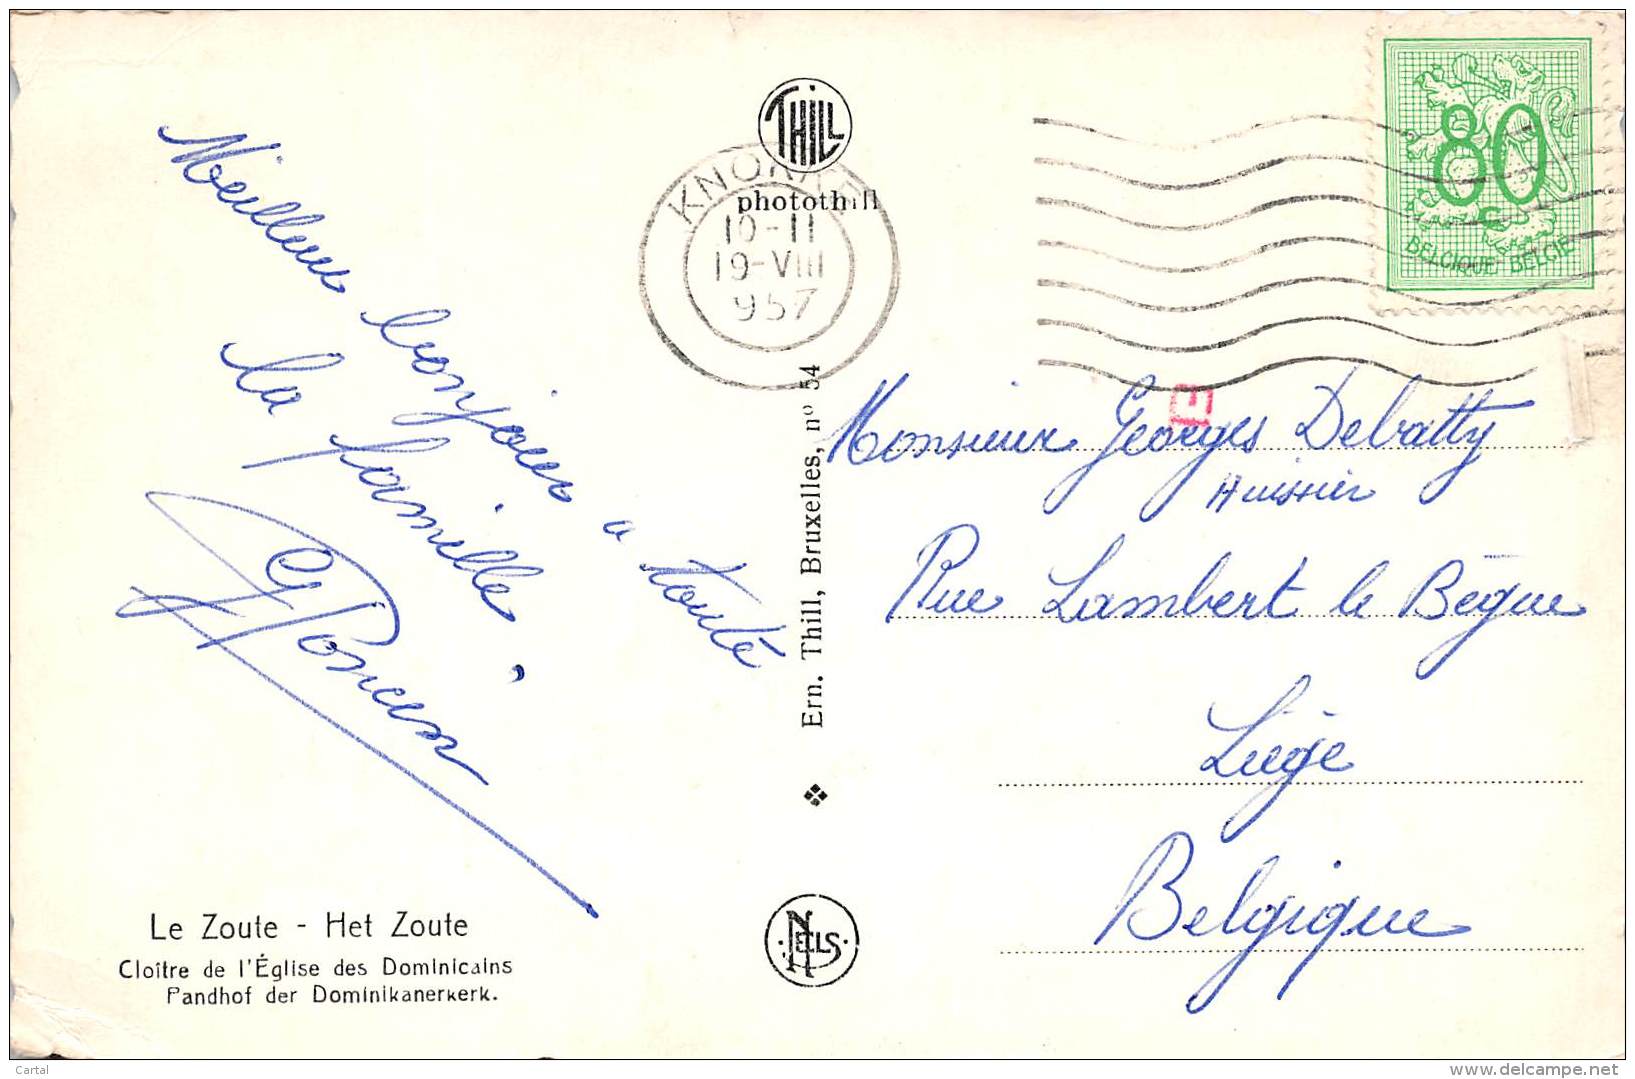 Meilleur bonjour a toute
la famille
GPoncin
Le Zoute - Het Zoute
Cloître de l'Église des Dominicains
Pandhof der Dominikanerkerk.
THILL
photothill
KNOKKE
10-11
19-VIII
957
Ern. Thill, Bruxelles, nº 54
NELLS
80
BELGIQUE BELGIE
E
Monsieur Georges Debatty
Huissier
Rue Lambert le Bègue
Liège
Belgique
Cartal
delcampe.net